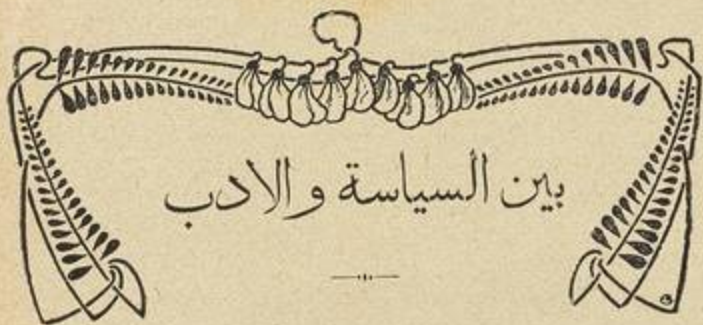 بين السياسة والأدب